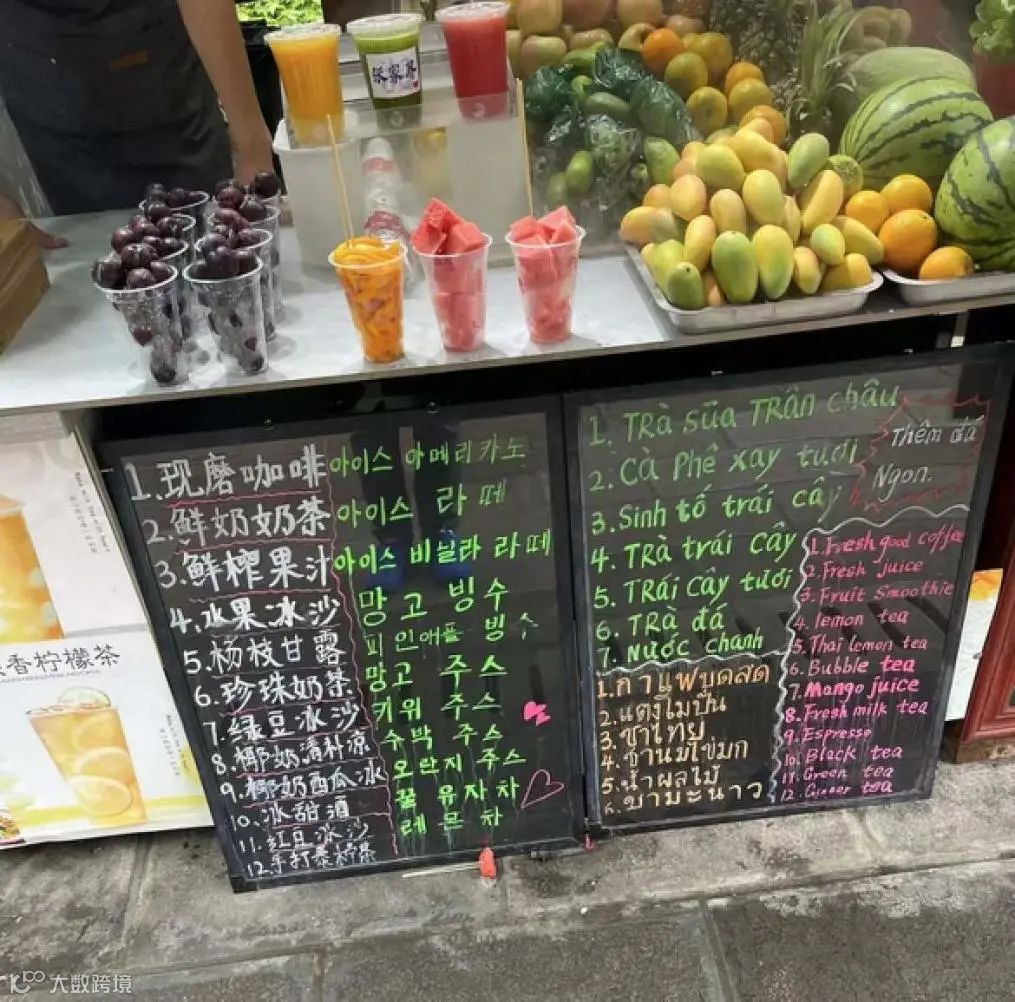 张家界
1.现磨咖啡
2.鲜奶奶茶
3.鲜榨果汁
4.水果冰沙
5.杨枝甘露
6.珍珠奶茶
7.绿豆冰沙
8.椰奶清补凉
9.椰奶西瓜冰
10.冰甜酒
11.红豆冰沙
12.手打柠檬茶
아이스 아메리카노
아이스 라떼
아이스 비닐라 라떼
망고 빙수
피인애플 빙수
망고 주스
키위 주스
수박 주스
오란지 주스
꿀 유자차
레몬차
1. TRà sữa TRân châu
2. Cà Phê xay tươi
3. Sinh tố trái cây
4. TRà trái cây
5. TRái cây tươi
6. TRà đá
7. Nước chanh
Thêm đá
Ngon.
1. Fresh good coffee
2. Fresh juice
3. Fruit Smoothie
4. lemon tea
5. Thai lemon tea
6. Bubble tea
7. Mango juice
8. Fresh milk tea
9. Espresso
10. Black tea
11. Green tea
12. Ginger tea
1. กาแฟบดสด
2. แตงโมปั่น
3. ชาไทย
4. ชานมไข่มุก
5. น้ำผลไม้
6. ชามะนาว
香柠檬茶
大数跨境